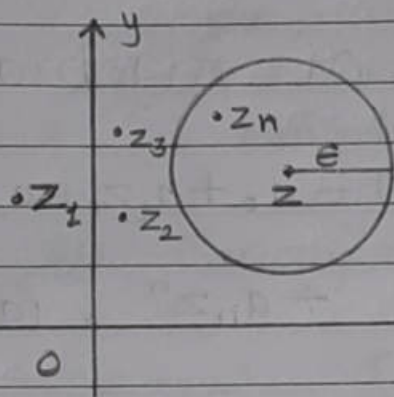 y
•Zn
•Z3
ε
Z
•Z1
•Z2
0